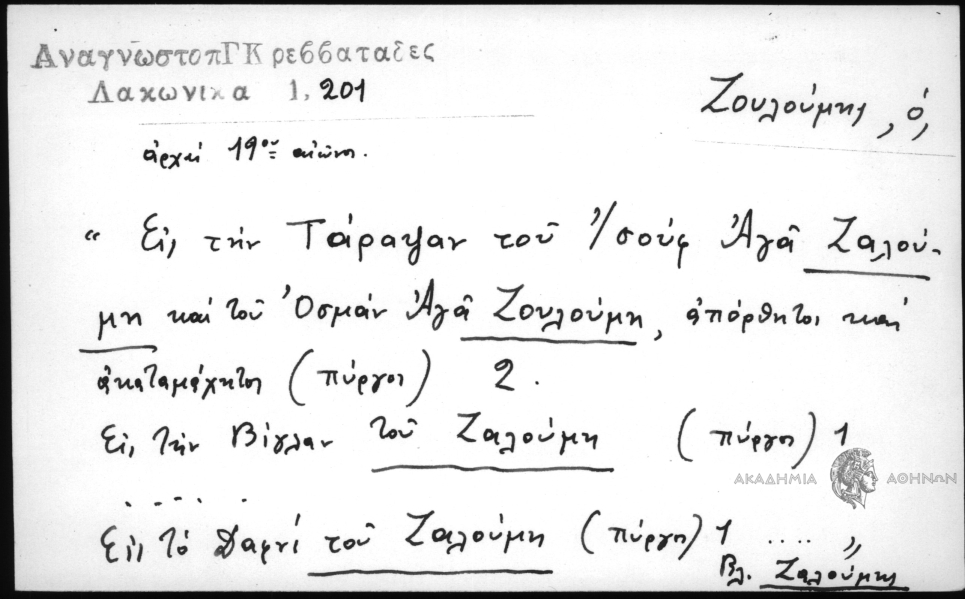 ΑναγνωστοπΓΚ ρεββαταδες
Λακωνικα 1, 201
Ζουλούμης, ὁ,
ἀρχαί 19ου αἰῶνος.
“ Εἰς τήν Τάραψαν τοῦ Ἰσούφ Ἀγᾶ Ζαλού-
μη καί τοῦ Ὀσμάν Ἀγᾶ Ζουλούμη, ἀπόρθητοι καί
ἀκαταμάχητοι (πύργοι) 2.
Εἰς τήν Βίγλαν τοῦ Ζαλούμη (πύργος) 1
ΑΚΑΔΗΜΙΑ ΑΘΗΝΩΝ
. . . . . .
Εἰς τό Δαφνί τοῦ Ζαλούμη (πύργος) 1 .... ”
Βλ. Ζαλούμης